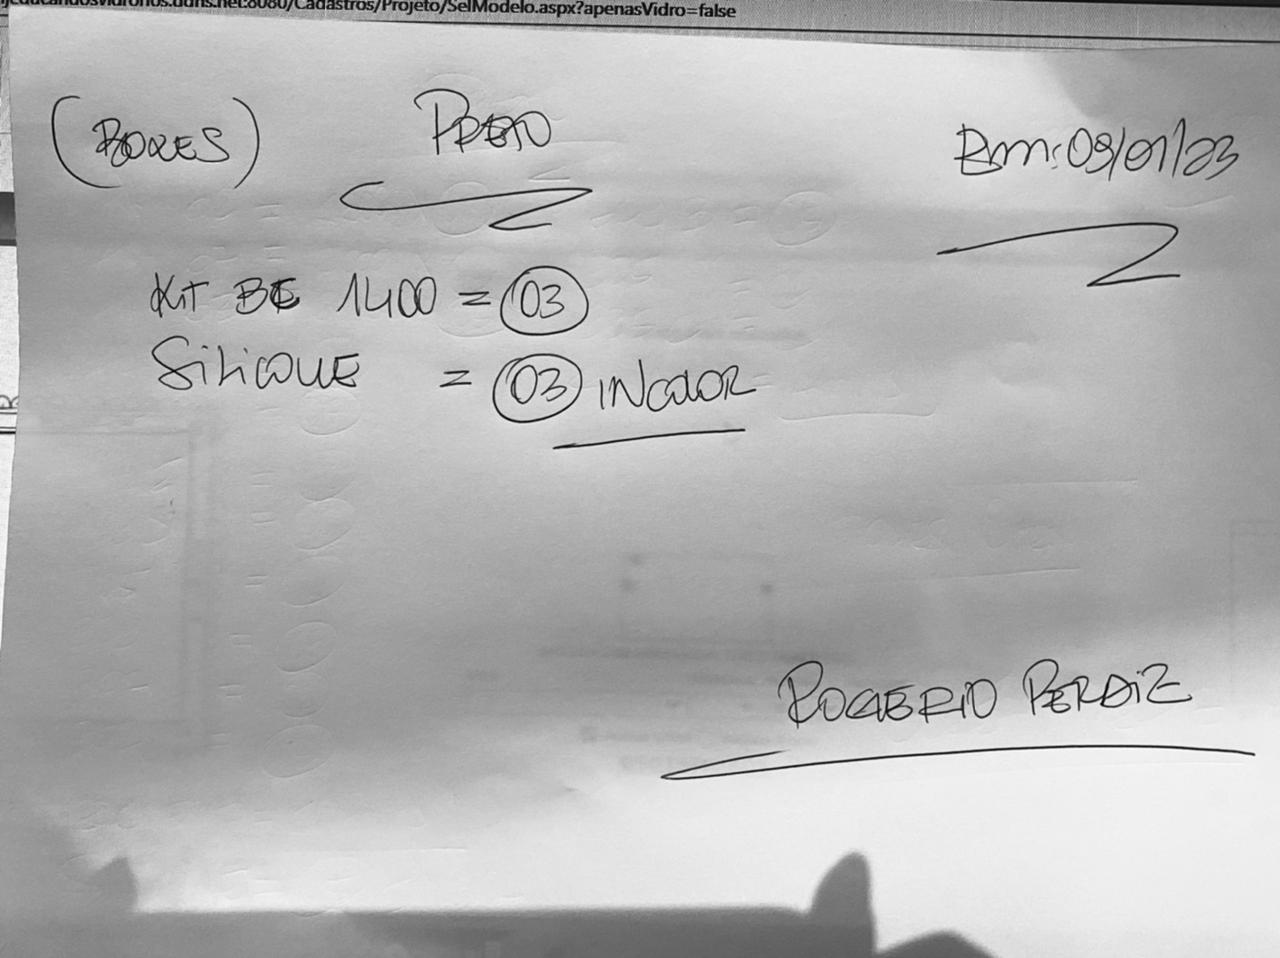 jeducandosvidrohos.ddns.net:8080/Cadastros/Projeto/SelModelo.aspx?apenasVidro=false
(BOXES) PRETO Bm: 09/01/23
KIT BE 1400 = 03
SILICONE = 03 INCOLOR
ROGERIO PERDIZ